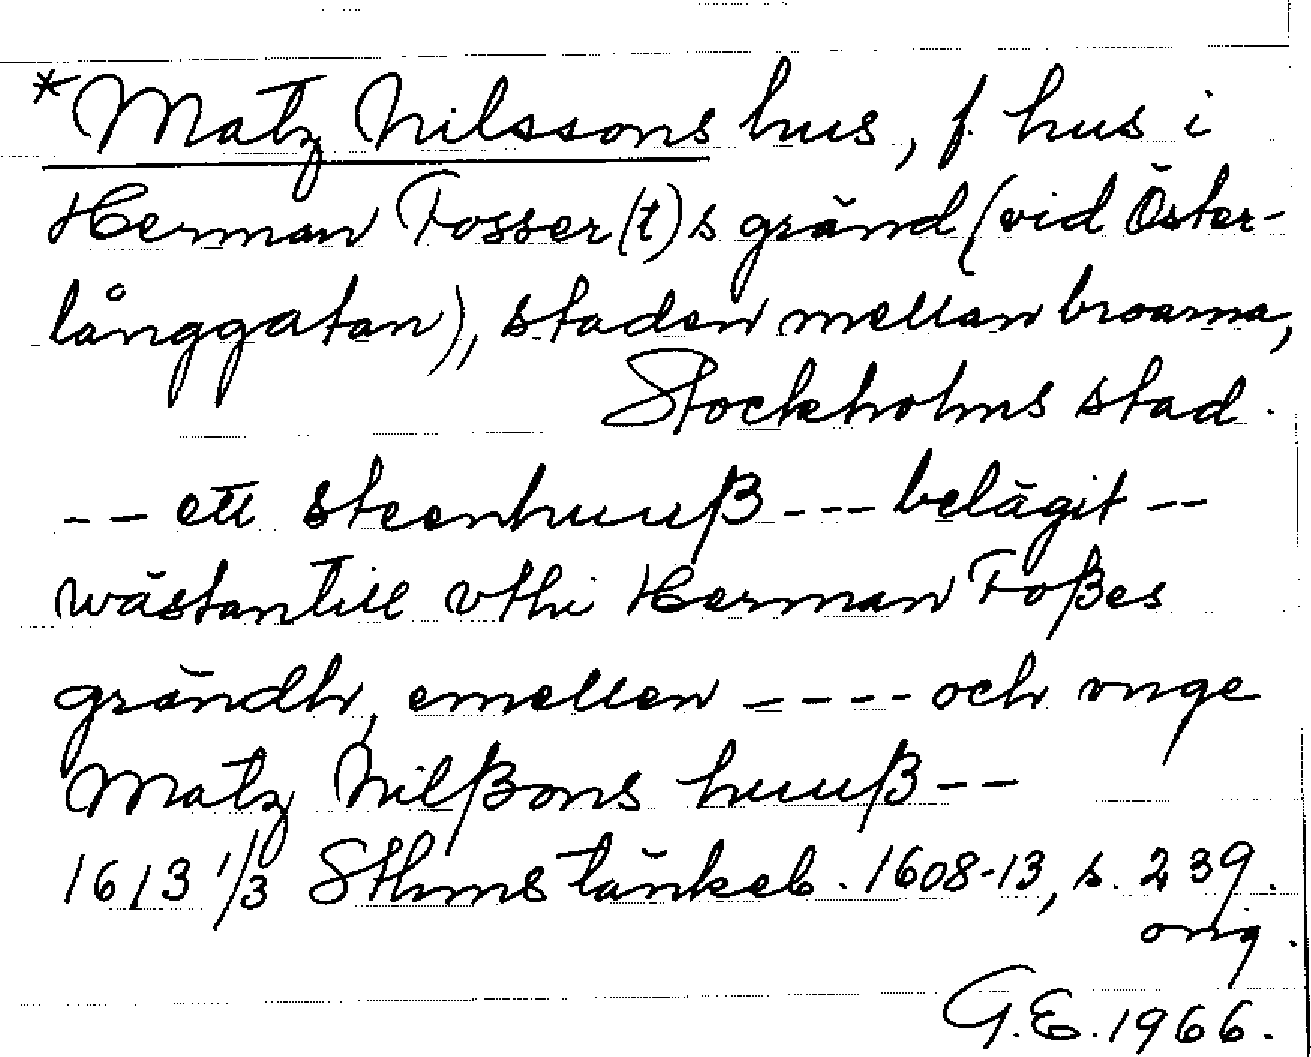 *Matz Nilssons hus, f. hus i
Herman Fosser(t)s gränd (vid Öster-
långgatan), staden mellan broarna,
Stockholms stad.
-- ett steenhuuß --- belägit --
wästantill vthi Herman Foßes
grändh, emellen ---- och vnge
Matz Nilßons huuß --
1613 1/3 Sthms tänkeb. 1608-13, s. 239.
orig.
G.E. 1966.